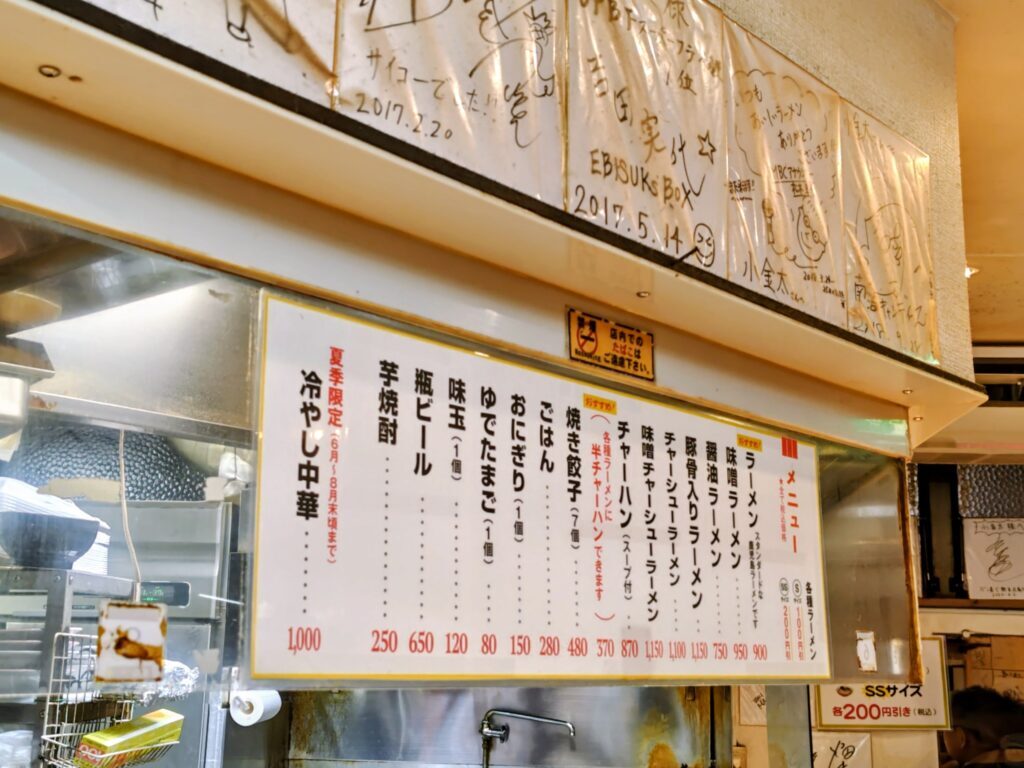 サイコーでした!!
2017.2.20
吉田実代
EBISUK's BOX
2017.5.14
いつも
ラーメン
ありがとう
ございます
小金太
禁煙
店内での
たばこは
ご遠慮下さい。
メニュー
各種ラーメン
Sサイズ 100円引
SSサイズ 200円引
おすすめ!
ラーメン スタンダードな鹿児島ラーメンです 900
味噌ラーメン 950
醤油ラーメン 750
豚骨入りラーメン 1,150
チャーシューラーメン 1,100
味噌チャーシューラーメン 1,150
チャーハン(スープ付) 870
おすすめ!
(各種ラーメンに半チャーハンできます) 370
焼き餃子(7個) 480
ごはん 280
おにぎり(1個) 150
ゆでたまご(1個) 80
味玉(1個) 120
瓶ビール 650
芋焼酎 250
夏季限定(6月~8月末頃まで)
冷やし中華 1,000
SSサイズ
各200円引き(税込)